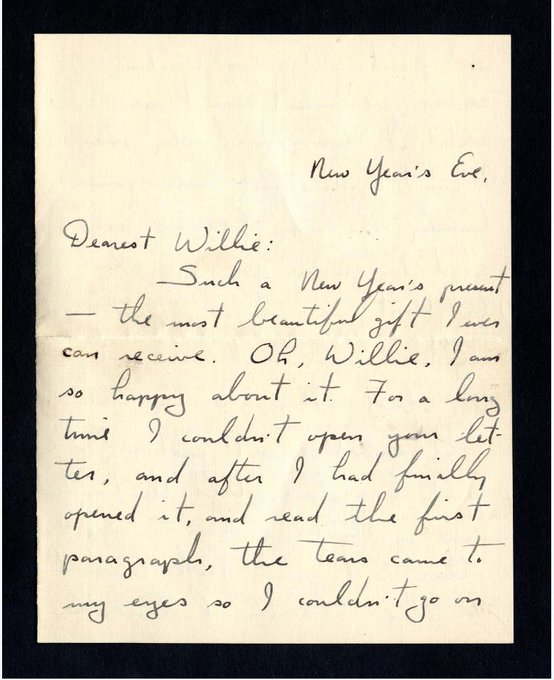 New Year's Eve.
Dearest Willie:
Such a New Year's present
— the most beautiful gift I ever
can receive. Oh, Willie, I am
so happy about it. For a long
time I couldn't open your let-
ter, and after I had finally
opened it, and read the first
paragraph, the tears came to
my eyes so I couldn't go on